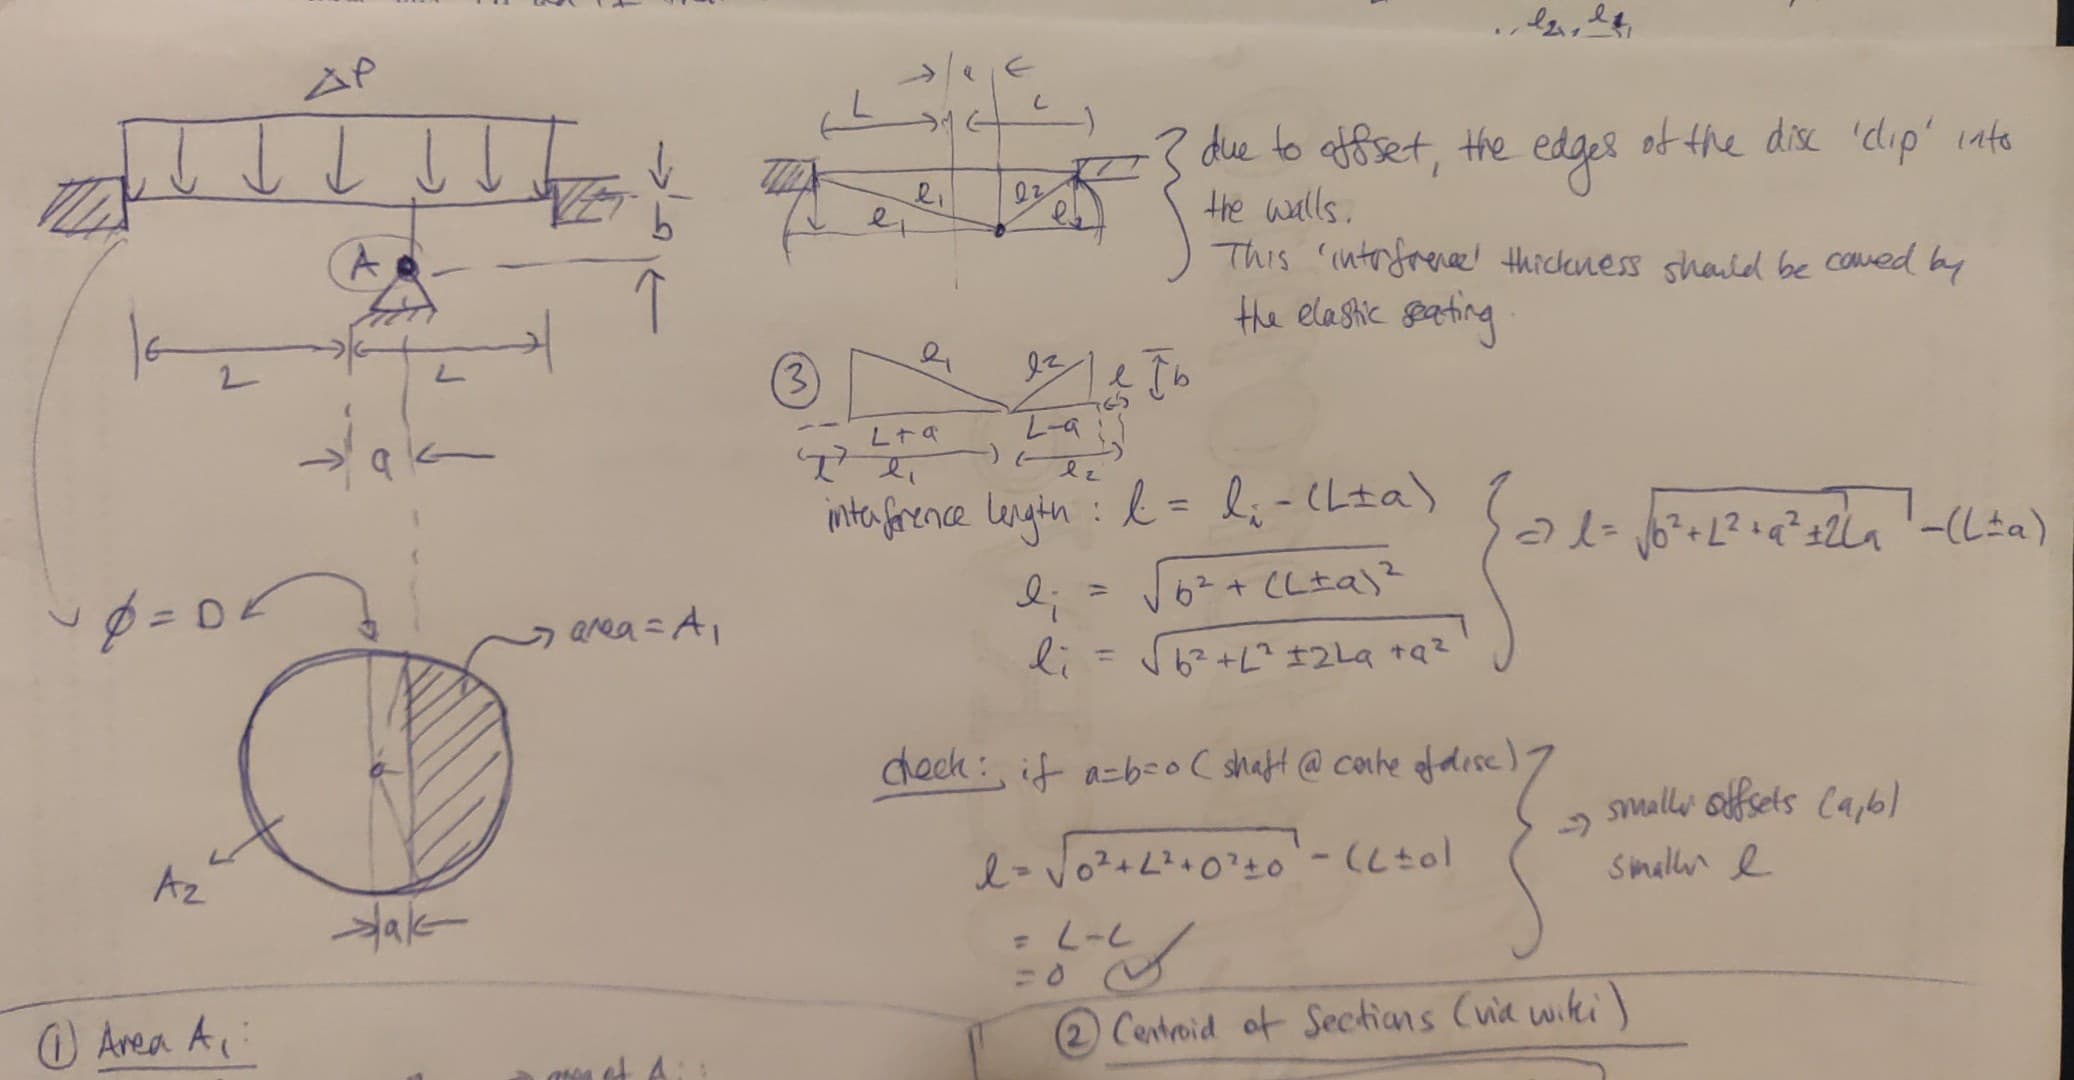 l₂, l₁
ΔP
b
A
L
L
a
φ = D
area = A₁
A₂
a
a
L
L
l₁
l₂
l₁
l₂
due to offset, the edges of the disc 'clip' into
the walls.
This 'interference' thickness should be covered by
the elastic seating.
③
l₁
l₂
l
b
L+a
L-a
l
l₁
l₂
interference length : l = lᵢ - (L±a)
lᵢ = √b² + (L±a)²
lᵢ = √b² + L² ± 2La + a²
⇒ l = √b² + L² + a² ± 2La - (L±a)
check: if a=b=0 (shaft @ centre of disc)
l = √0² + L² + 0² ± 0 - (L±0)
= L-L
= 0 ✓
⇒ smaller offsets (a,b)
smaller l
① Area A₁:
② Centroid of Sections (via wiki)